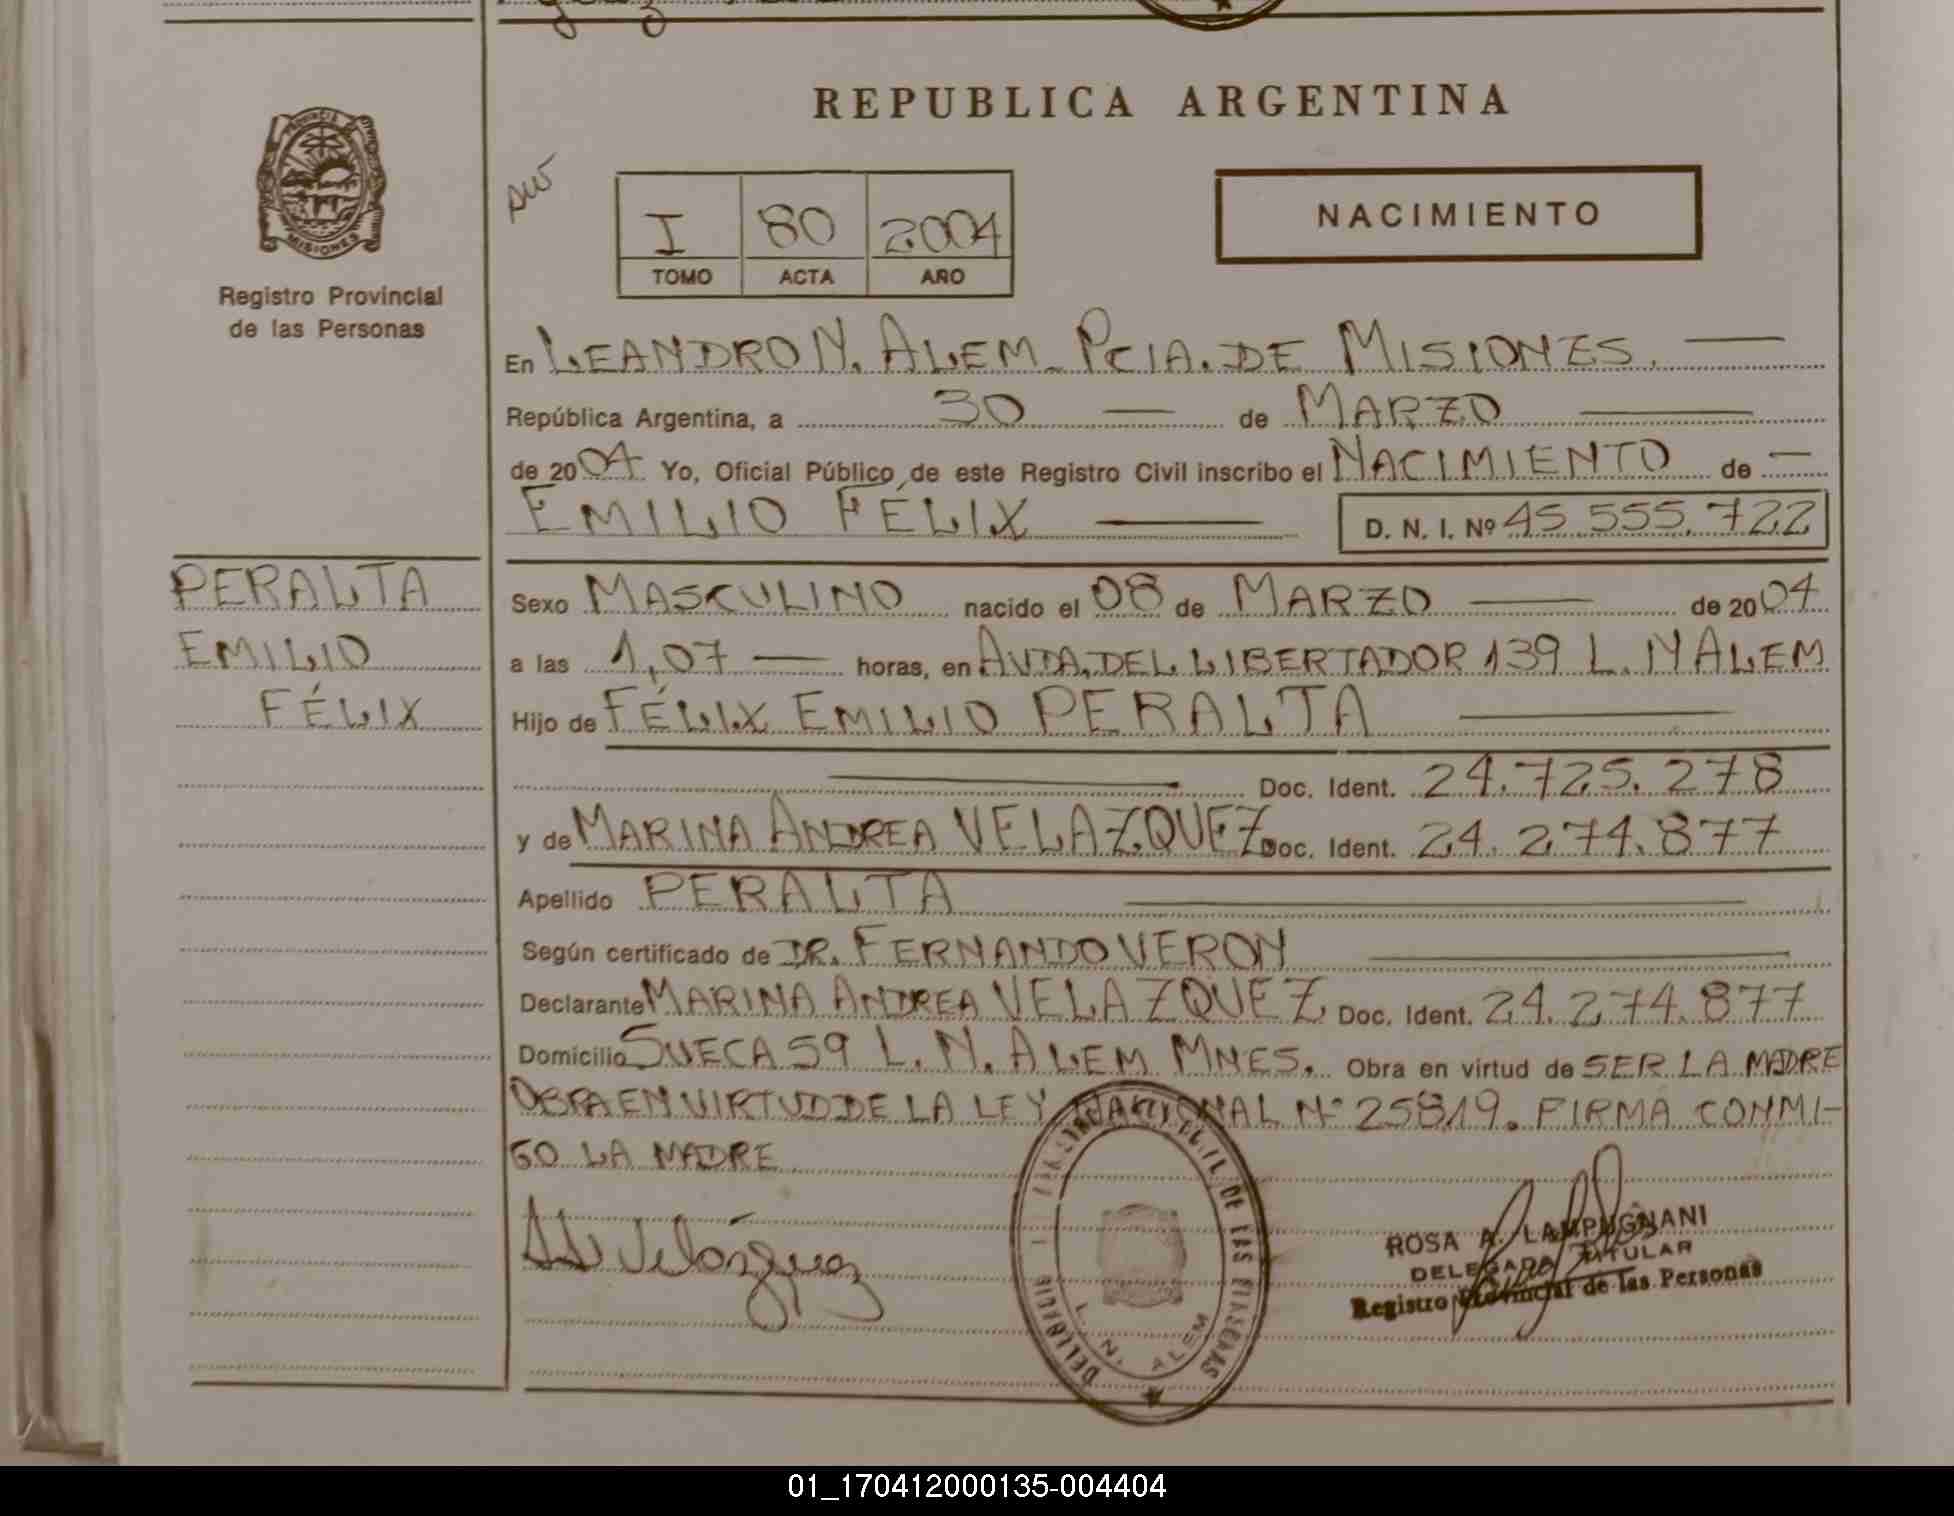 REPUBLICA ARGENTINA
PROVINCIA DE MISIONES
Registro Provincial
de las Personas
I 80 2004
TOMO ACTA AÑO
NACIMIENTO
En LEANDRO N. ALEM - PCIA. DE MISIONES.
República Argentina, a 30 de MARZO
de 2004 Yo, Oficial Público de este Registro Civil inscribo el NACIMIENTO de
EMILIO FÉLIX D. N. I. Nº 45.555.722
PERALTA
EMILIO
FÉLIX
Sexo MASCULINO nacido el 08 de MARZO de 2004
a las 1,07 horas, en AVDA. DEL LIBERTADOR 139 L. N ALEM
Hijo de FÉLIX EMILIO PERALTA
Doc. Ident. 24.725.278
y de MARINA ANDREA VELAZQUEZ Doc. Ident. 24.274.877
Apellido PERALTA
Según certificado de DR. FERNANDO VERON
Declarante MARINA ANDREA VELAZQUEZ Doc. Ident. 24.274.877
Domicilio SUECA 59 L. N. ALEM MNES. Obra en virtud de SER LA MADRE
OBRA EN VIRTUD DE LA LEY NACIONAL Nº 25819. FIRMA CONMI-
GO LA MADRE
Velázquez
DE LAS PERSONAS
L. N. ALEM
ROSA A. LAMPUGNANI
DELEGADA TITULAR
Registro Provincial de las Personas
01_170412000135-004404